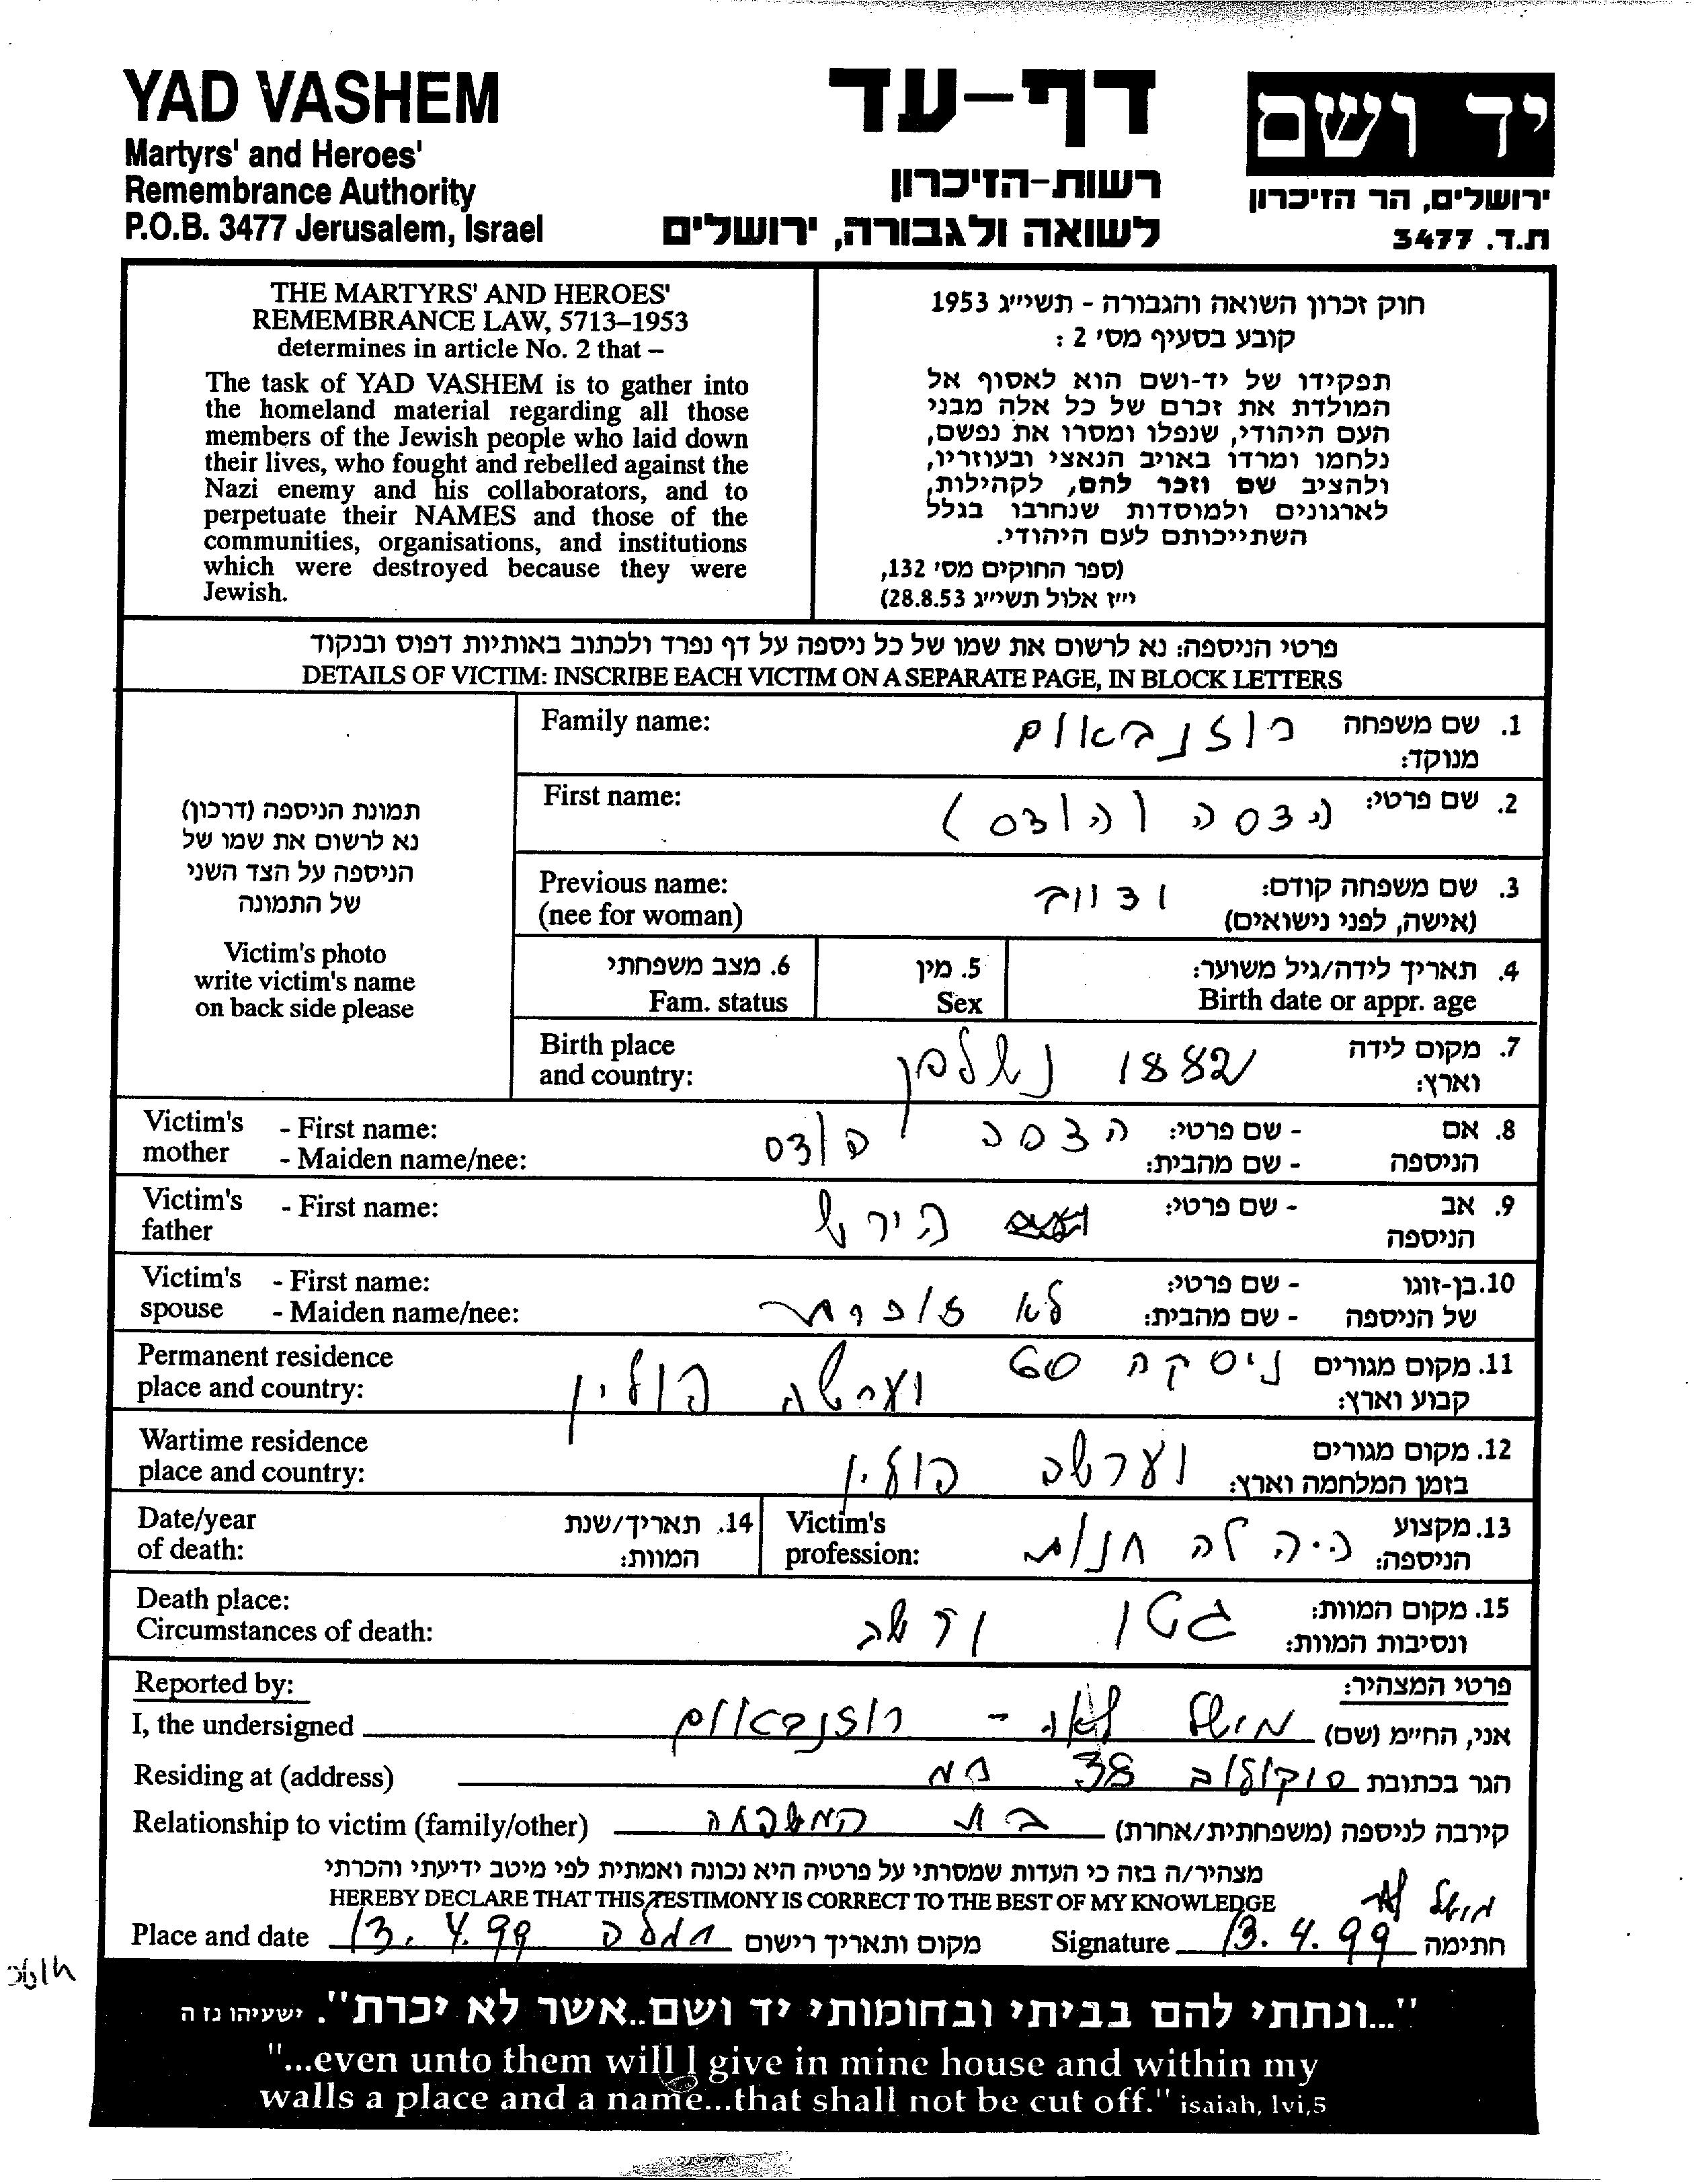 YAD VASHEM
Martyrs' and Heroes'
Remembrance Authority
P.O.B. 3477 Jerusalem, Israel
דף-עד
רשות-הזיכרון
לשואה ולגבורה, ירושלים
יד ושם
ירושלים, הר הזיכרון
ת.ד. 3477
THE MARTYRS' AND HEROES'
REMEMBRANCE LAW, 5713–1953
determines in article No. 2 that –
The task of YAD VASHEM is to gather into
the homeland material regarding all those
members of the Jewish people who laid down
their lives, who fought and rebelled against the
Nazi enemy and his collaborators, and to
perpetuate their NAMES and those of the
communities, organisations, and institutions
which were destroyed because they were
Jewish.
חוק זכרון השואה והגבורה - תשי״ג 1953
קובע בסעיף מס׳ 2 :
תפקידו של יד-ושם הוא לאסוף אל
המולדת את זכרם של כל אלה מבני
העם היהודי, שנפלו ומסרו את נפשם,
נלחמו ומרדו באויב הנאצי ובעוזריו,
ולהציב שם וזכר להם, לקהילות,
לארגונים ולמוסדות שנחרבו בגלל
השתייכותם לעם היהודי.
(ספר החוקים מס׳ 132,
י״ז אלול תשי״ג 28.8.53)
פרטי הניספה: נא לרשום את שמו של כל ניספה על דף נפרד ולכתוב באותיות דפוס ובנקוד
DETAILS OF VICTIM: INSCRIBE EACH VICTIM ON A SEPARATE PAGE, IN BLOCK LETTERS
תמונת הניספה (דרכון)
נא לרשום את שמו של
הניספה על הצד השני
של התמונה
Victim's photo
write victim's name
on back side please
Family name: רוזנבאום 1. שם משפחה
מנוקד:
First name: 2. שם פרטי:
Previous name: 3. שם משפחה קודם:
(nee for woman) (אישה, לפני נישואים)
6. מצב משפחתי 5. מין 4. תאריך לידה/גיל משוער:
Fam. status Sex Birth date or appr. age
Birth place 1882 7. מקום לידה
and country: וארץ:
Victim's - First name: - שם פרטי: 8. אם
mother - Maiden name/nee: - שם מהבית: הניספה
Victim's - First name: הירש - שם פרטי: 9. אב
father הניספה
Victim's - First name: לא זוכרת - שם פרטי: 10. בן-זוגו
spouse - Maiden name/nee: - שם מהבית: של הניספה
Permanent residence ניסקה 60 וערשה פולין 11. מקום מגורים
place and country: קבוע וארץ:
Wartime residence וערשה פולין 12. מקום מגורים
place and country: בזמן המלחמה וארץ:
Date/year 14. תאריך/שנת Victim's היה לה חנות 13. מקצוע
of death: המוות: profession: הניספה:
Death place: גטו ורשה 15. מקום המוות:
Circumstances of death: ונסיבות המוות:
Reported by: פרטי המצהיר:
I, the undersigned רוזנבאום - אני, החי״מ (שם)
Residing at (address) סוקולוב 38 הגר בכתובת
Relationship to victim (family/other) בת המשפחה קירבה לניספה (משפחתית/אחרת)
מצהיר/ה בזה כי העדות שמסרתי על פרטיה היא נכונה ואמתית לפי מיטב ידיעתי והכרתי
HEREBY DECLARE THAT THIS TESTIMONY IS CORRECT TO THE BEST OF MY KNOWLEDGE
Place and date 13.4.99 רמלה מקום ותאריך רישום Signature 13.4.99 חתימה
"...ונתתי להם בביתי ובחומותי יד ושם..אשר לא יכרת". ישעיהו נז ה
"...even unto them will I give in mine house and within my
walls a place and a name...that shall not be cut off." isaiah, lvi,5